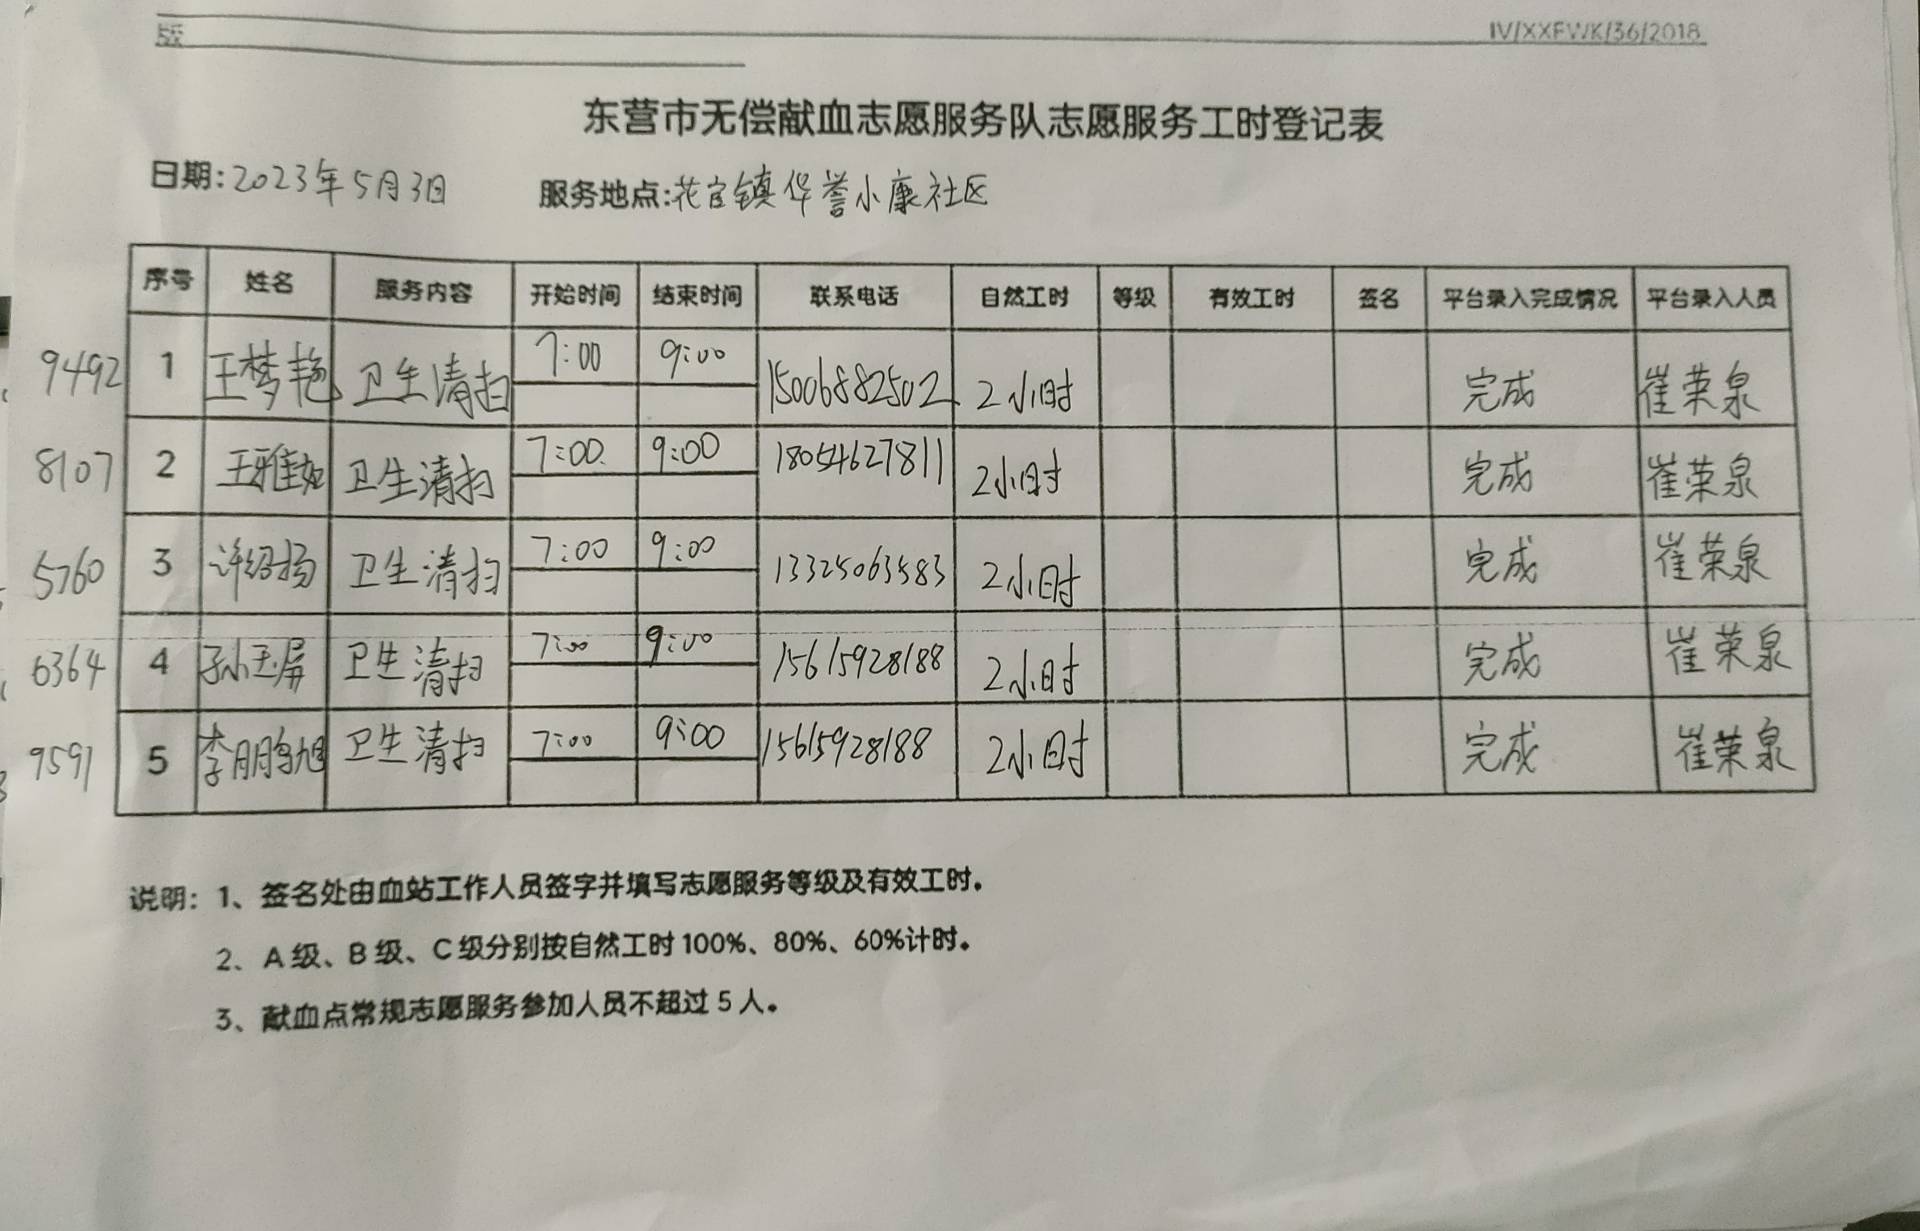 版
IV/XXFWK/36/2018
东营市无偿献血志愿服务队志愿服务工时登记表
日期:2023年5月3日 服务地点:花官镇华誉小康社区
序号 姓名 服务内容 开始时间 结束时间 联系电话 自然工时 等级 有效工时 签名 平台录入完成情况 平台录入人员
9492 1 王梦艳 卫生清扫 7:00 9:00 15006882502 2小时 完成 崔荣泉
8107 2 王雅如 卫生清扫 7:00 9:00 18054627811 2小时 完成 崔荣泉
5760 3 许绍扬 卫生清扫 7:00 9:00 13325063583 2小时 完成 崔荣泉
6364 4 孙玉屏 卫生清扫 7:00 9:00 15615928188 2小时 完成 崔荣泉
9591 5 李鹏旭 卫生清扫 7:00 9:00 15615928188 2小时 完成 崔荣泉
说明：1、签名处由血站工作人员签字并填写志愿服务等级及有效工时。
2、A级、B级、C级分别按自然工时100%、80%、60%计时。
3、献血点常规志愿服务参加人员不超过5人。